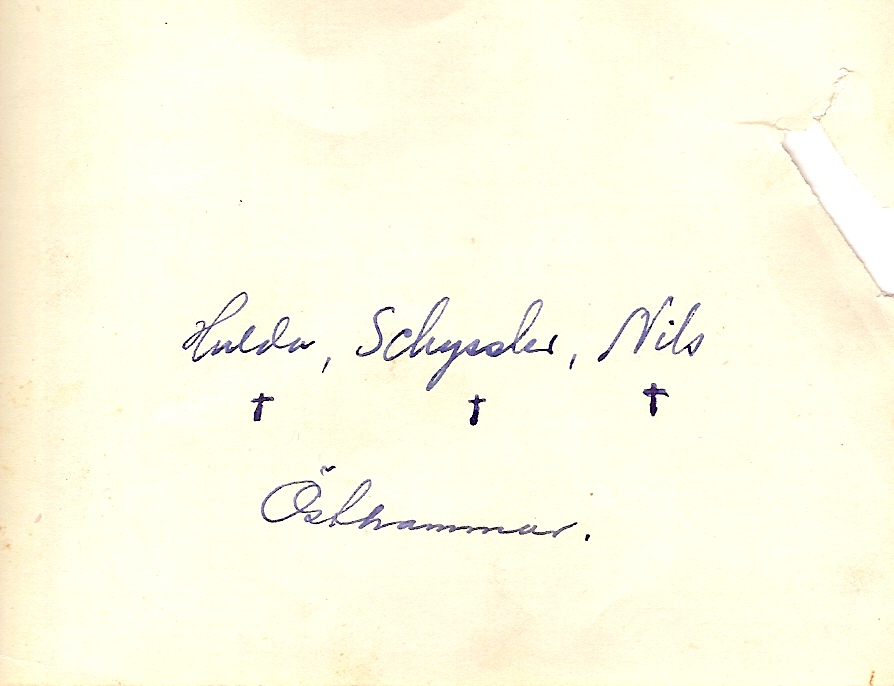 Hulda, Schyssler, Nils
† † †
Östhammar.